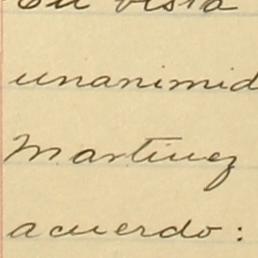 En vista
unanimid
Martinez
acuerdo: